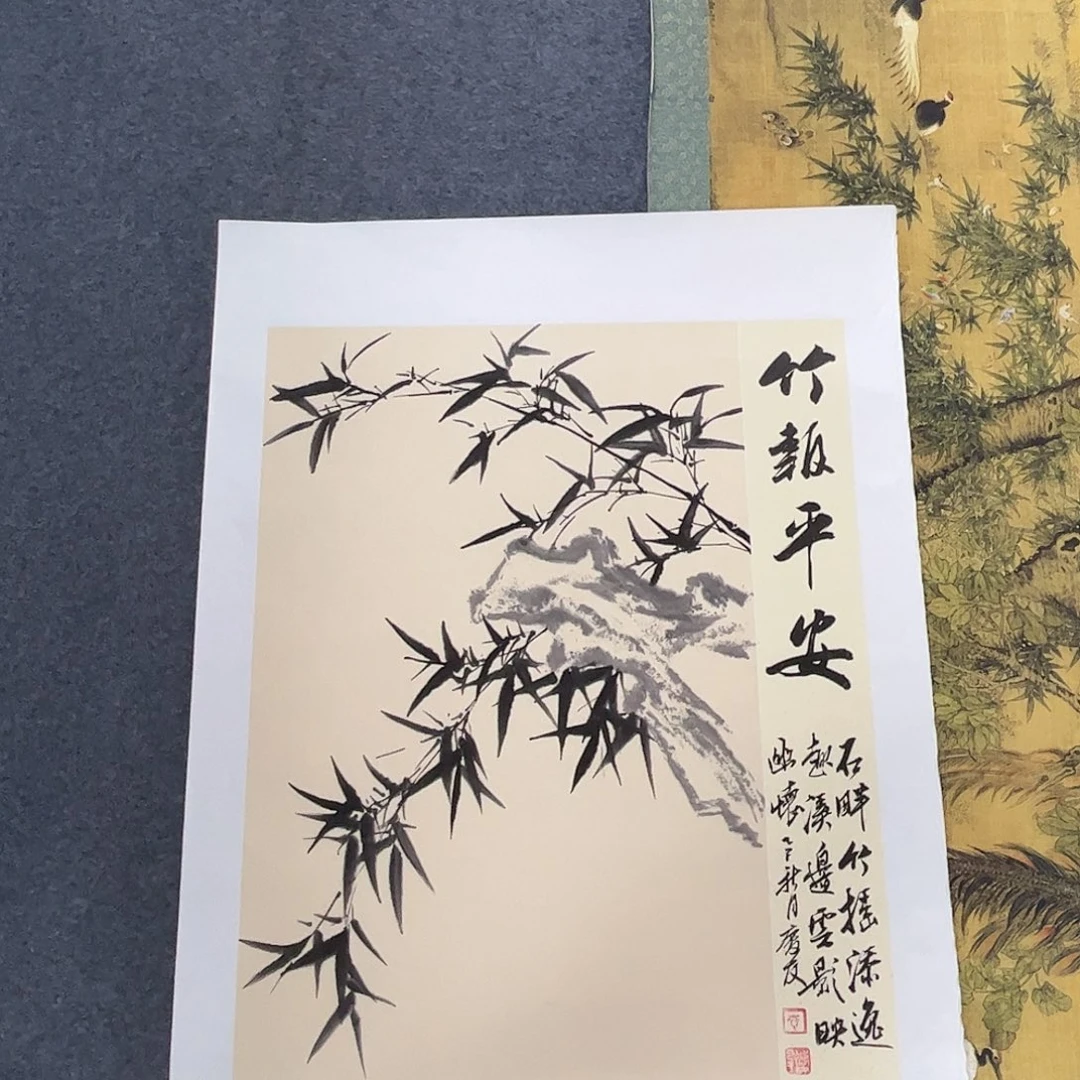 竹報平安
石畔竹搖添逸
趣溪邊雲影映
幽懷
秋月